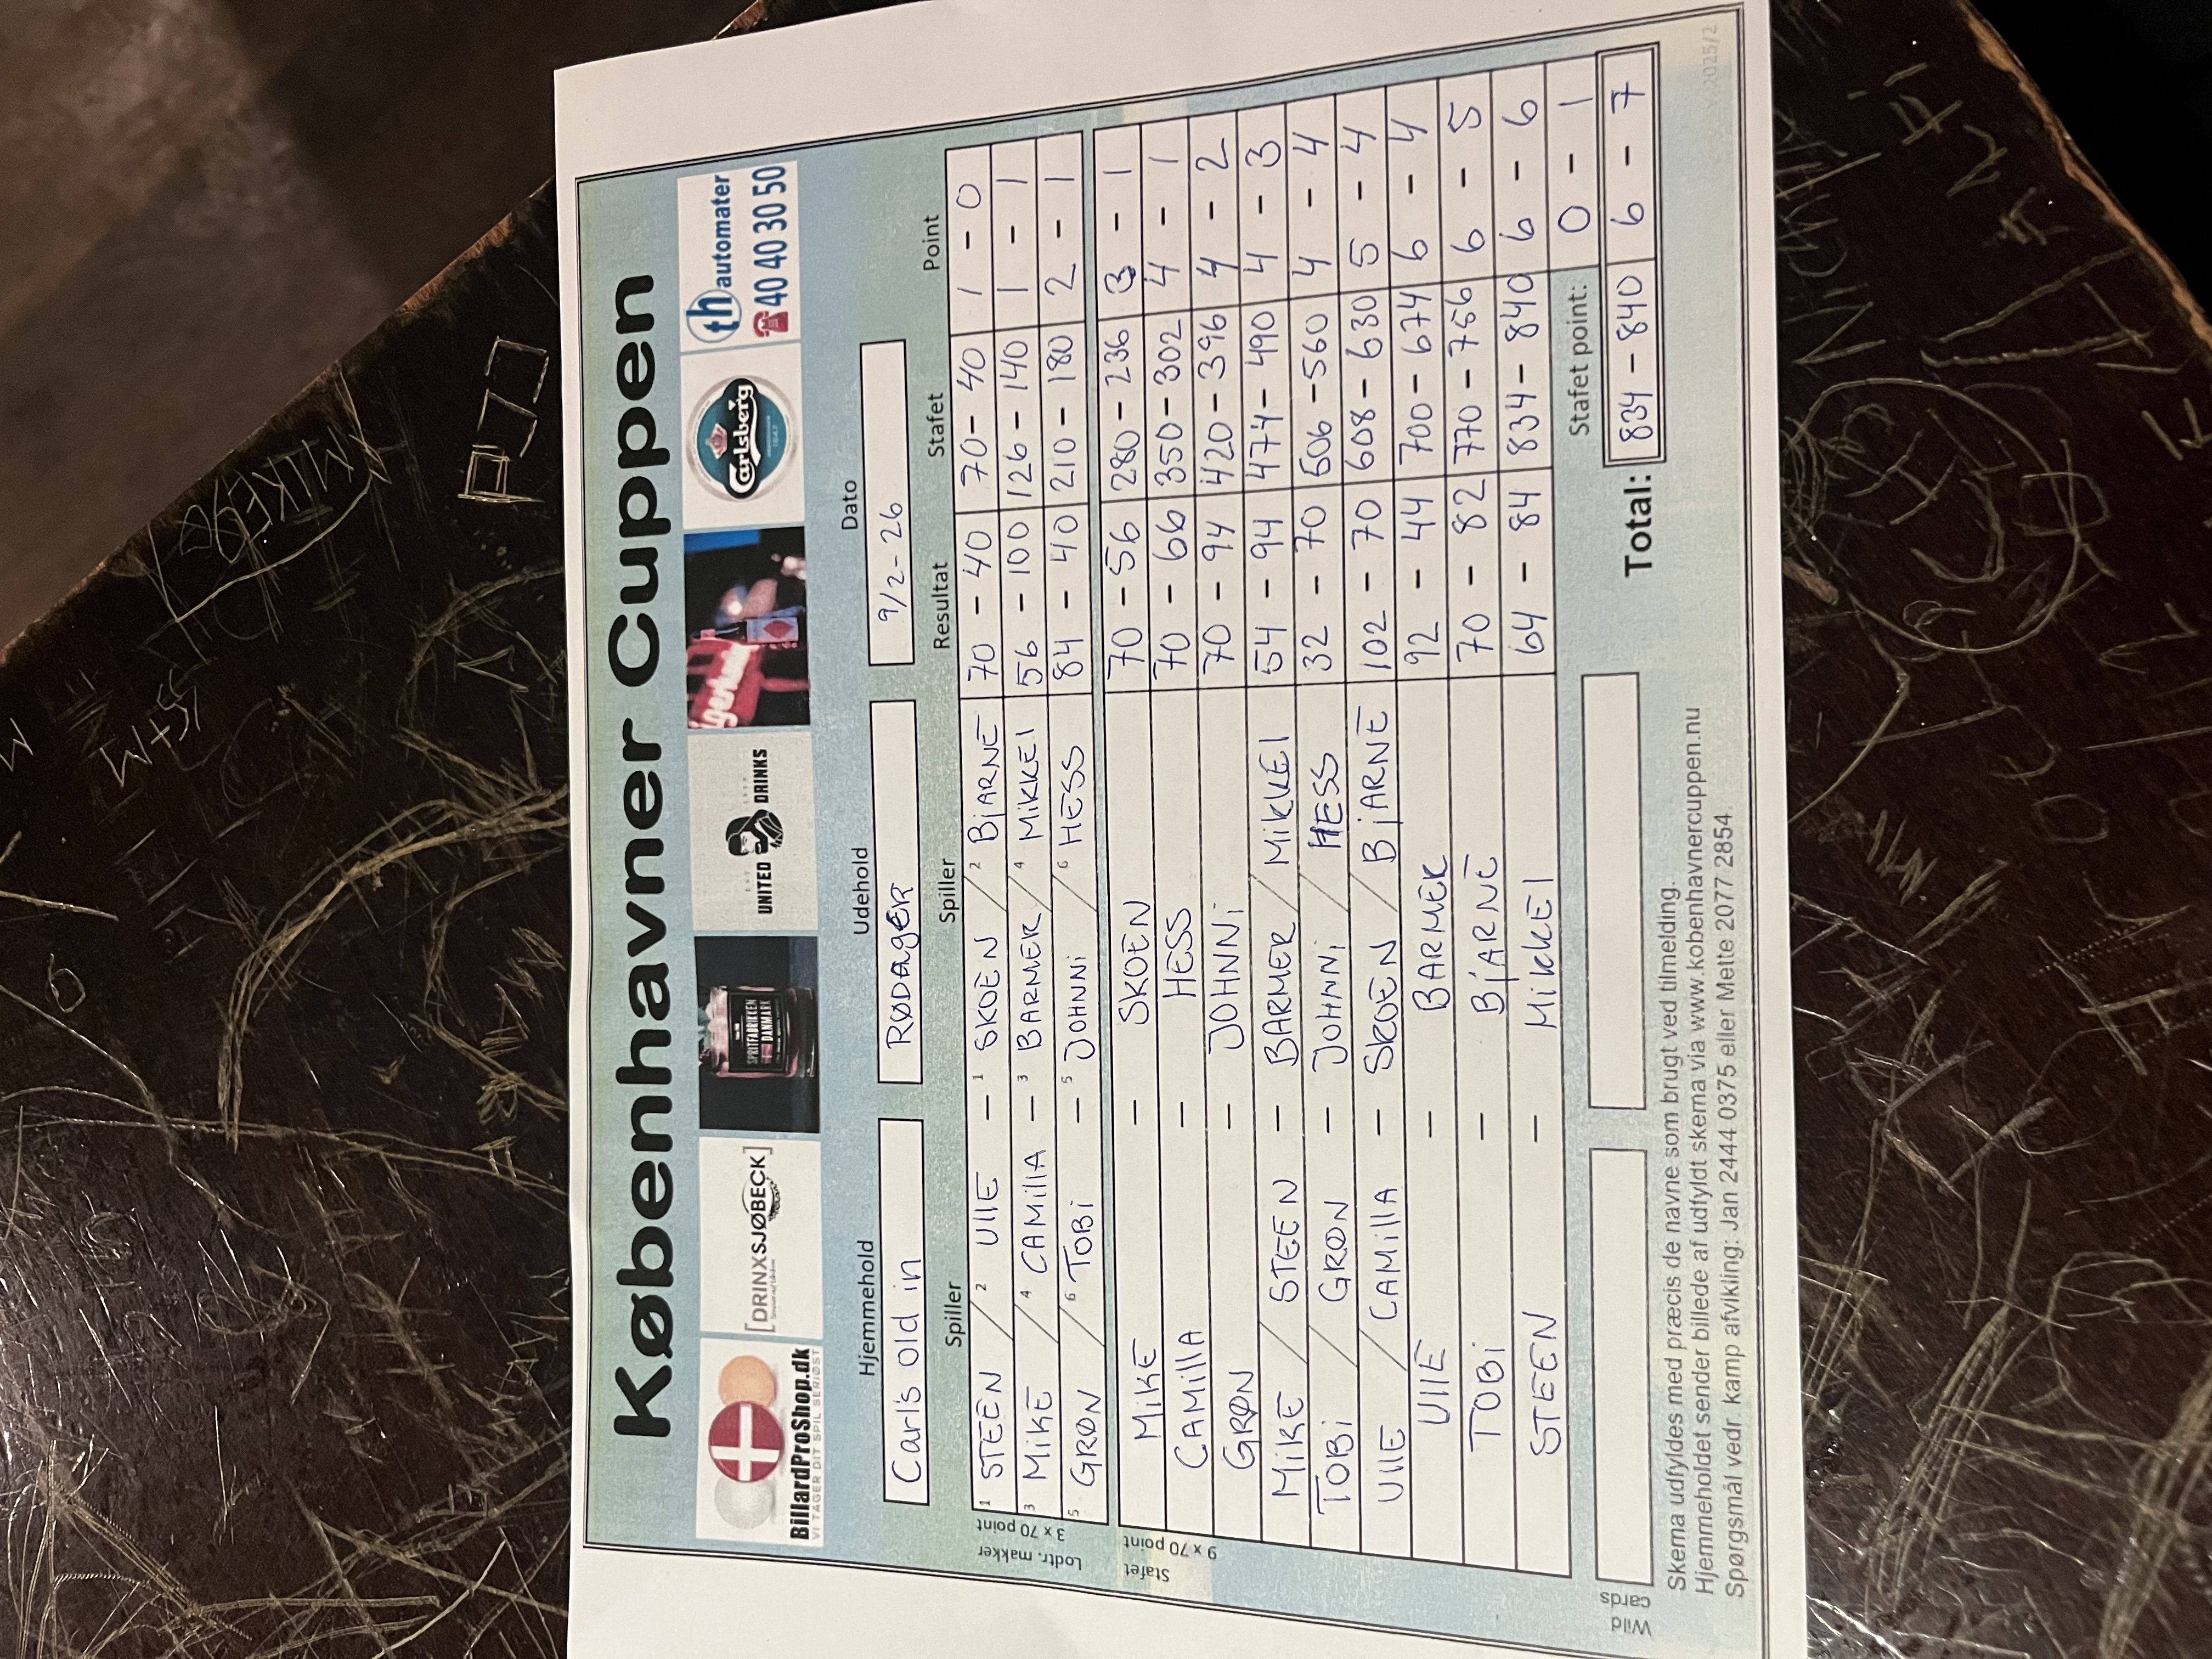 Københavner Cuppen
BillardProShop.dk
VI TAGER DIT SPIL SERIØST
[DRINXSJØBECK]
SPRITFABRIKKEN DANMARK
UNITED DRINKS
Carlsberg
1847
th automater
40 40 30 50
Hjemmehold Udehold Dato
Carl's old in RØDAgER 9/2-26
Spiller Spiller Resultat Stafet Point
Lodtr. makker
3 x 70 point
1 STEEN / 2 UllE - 1 SKOEN / 2 BjARNE 70 - 40 70 - 40 1 - 0
3 MiKE / 4 CAMillA - 3 BARMER / 4 MiKKEl 56 - 100 126 - 140 1 - 1
5 GRØN / 6 TOBi - 5 JOHNNi / 6 HESS 84 - 40 210 - 180 2 - 1
Stafet
9 x 70 point
MiKE - SKOEN 70 - 56 280 - 236 3 - 1
CAMillA - HESS 70 - 66 350 - 302 4 - 1
GRØN - JOHNNi 70 - 94 420 - 396 4 - 2
MiKE / STEEN - BARMER / MiKKEl 54 - 94 474 - 490 4 - 3
TOBi / GRØN - JOHNNi / HESS 32 - 70 506 - 560 4 - 4
UllE / CAMillA - SKOEN / BjARNE 102 - 70 608 - 630 5 - 4
UllE - BARMER 92 - 44 700 - 674 6 - 4
TOBi - BjARNE 70 - 82 770 - 756 6 - 5
STEEN - MiKKEl 64 - 84 834 - 840 6 - 6
Stafet point: 0 - 1
Wild cards
Total: 834 - 840 6 - 7
Skema udfyldes med præcis de navne som brugt ved tilmelding.
Hjemmeholdet sender billede af udfyldt skema via www.kobenhavnercuppen.nu
Spørgsmål vedr. kamp afvikling: Jan 2444 0375 eller Mette 2077 2854.
MIKE98